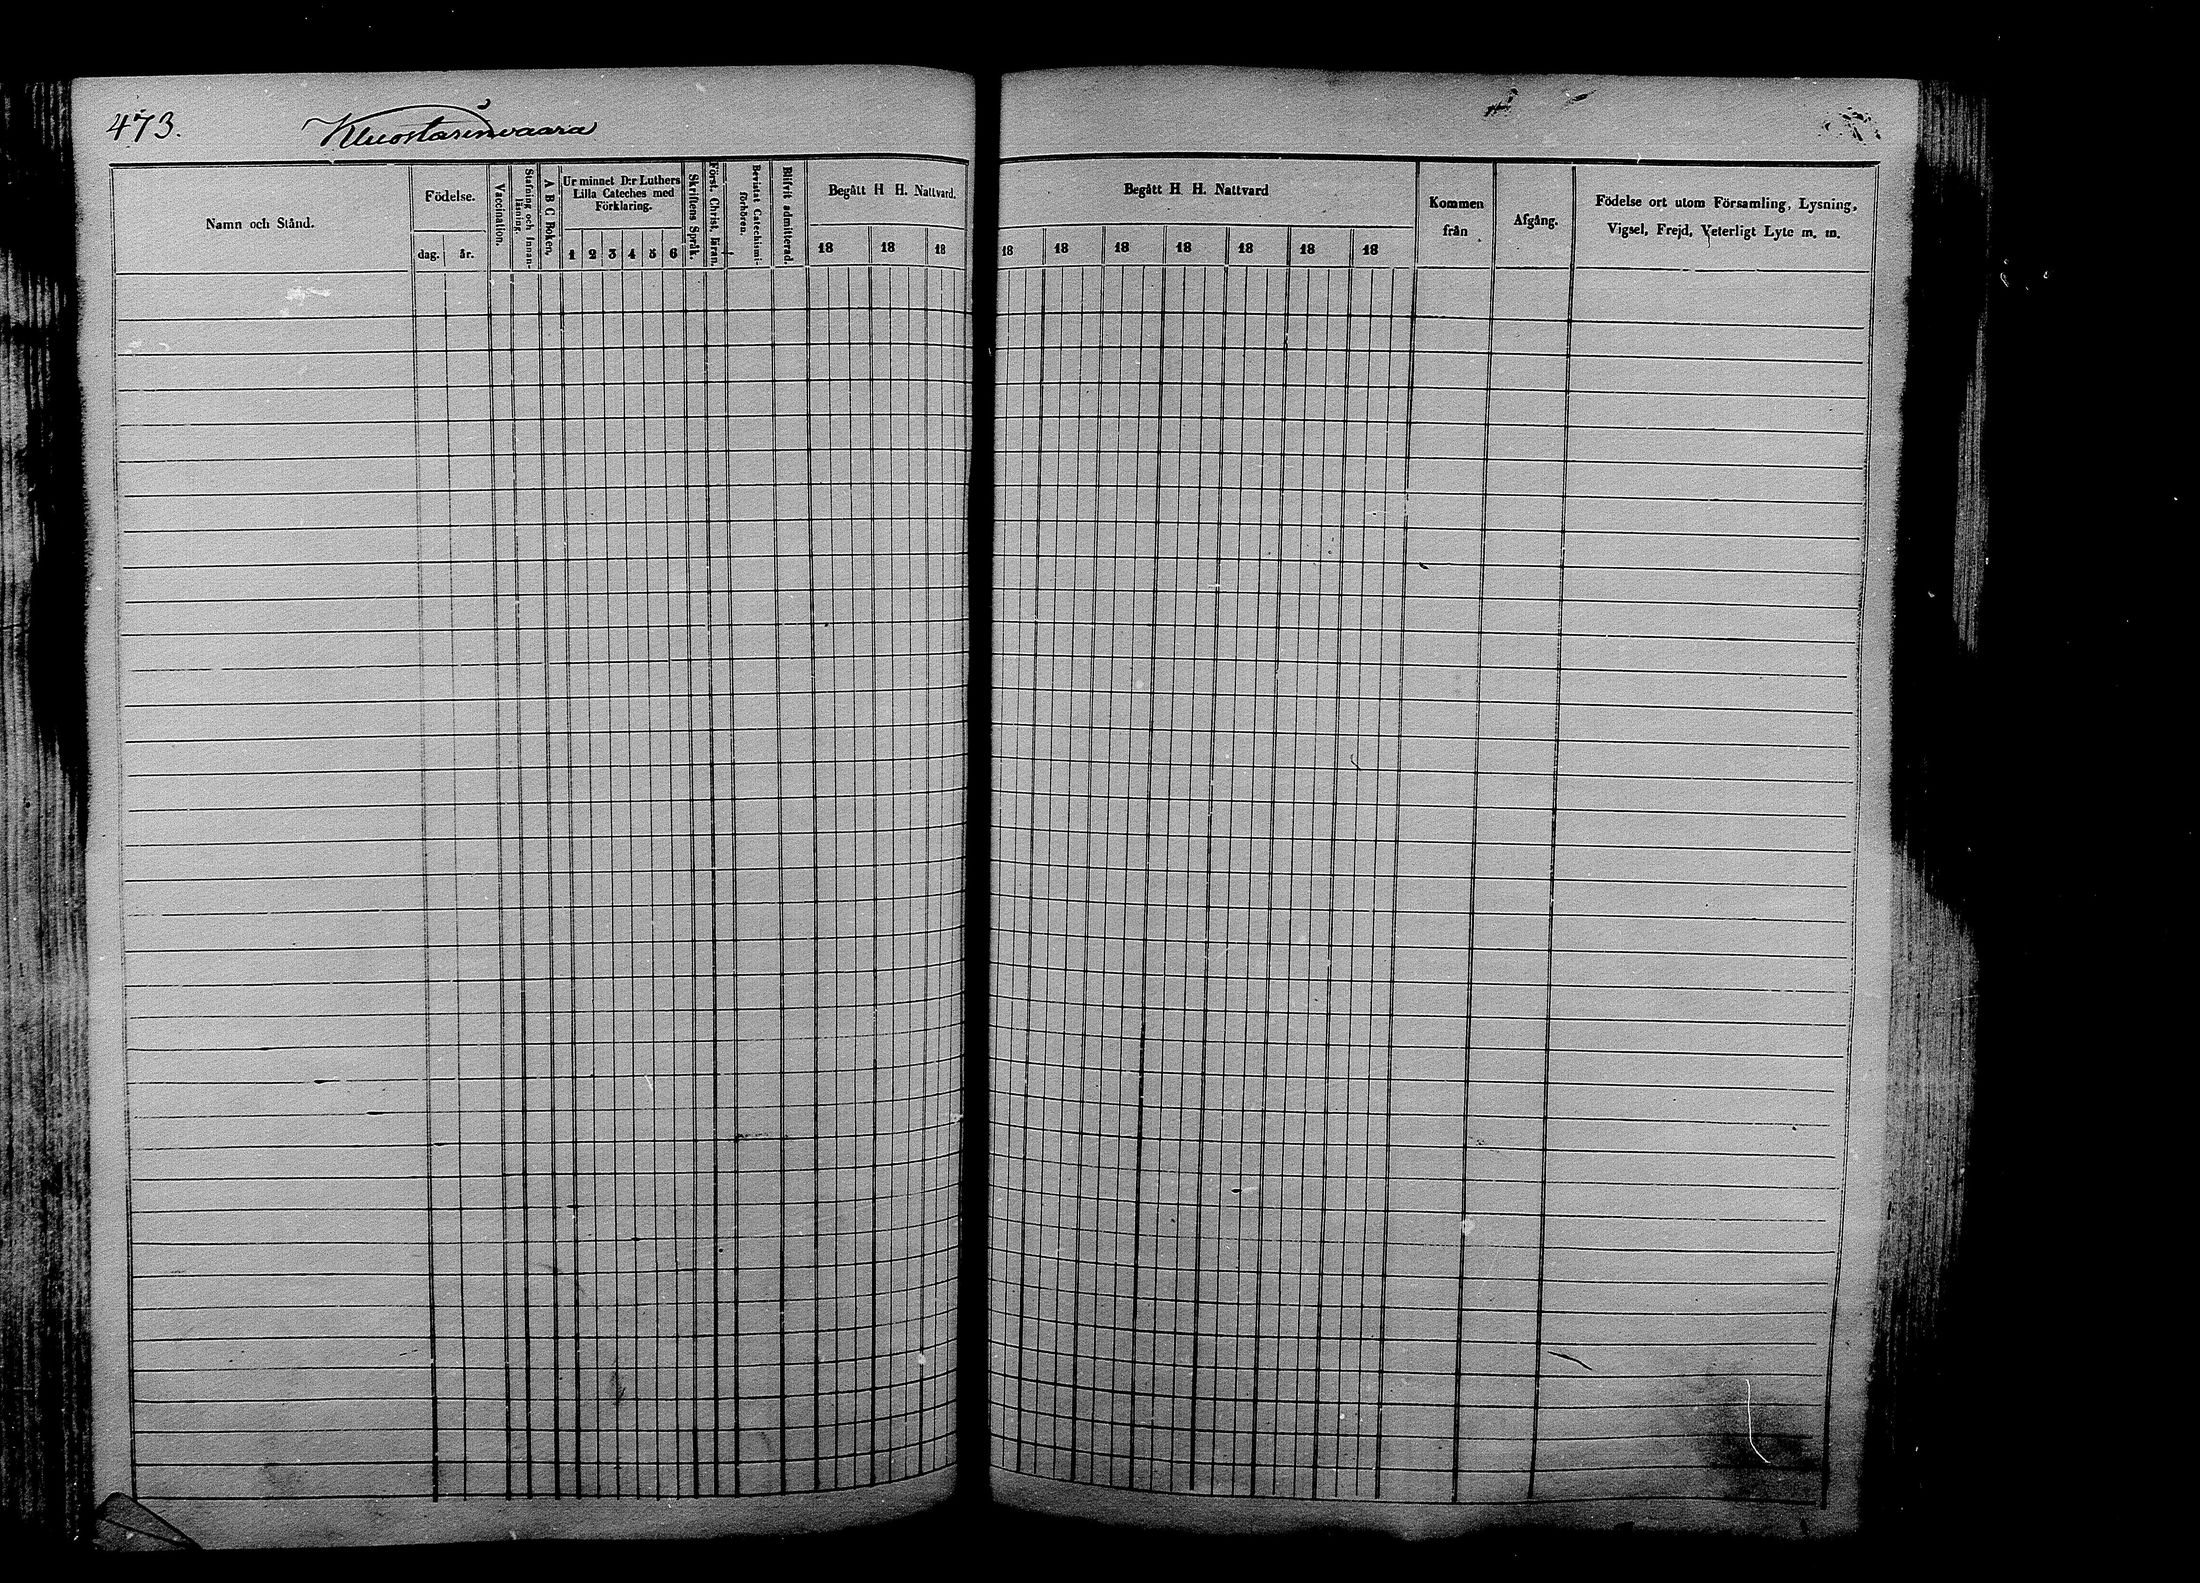 473.
Kluostarinvaara
Namn och Stånd.
Födelse.
dag. år.
Vaccination.
Stafning och Innan-
läsning.
A B C Boken.
Ur minnet D:r Luthers
Lilla Cateches med
Förklaring.
1 2 3 4 5 6
Skriftens Språk.
Först. Christ. läran.
Bevistat Catechismi-
förhören.
Blifvit admitterad.
Begått H H. Nattvard.
18 18 18
Begått H H. Nattvard
18 18 18 18 18 18 18
Kommen
från
Afgång.
Födelse ort utom Församling, Lysning,
Vigsel, Frejd, Veterligt Lyte m. m.